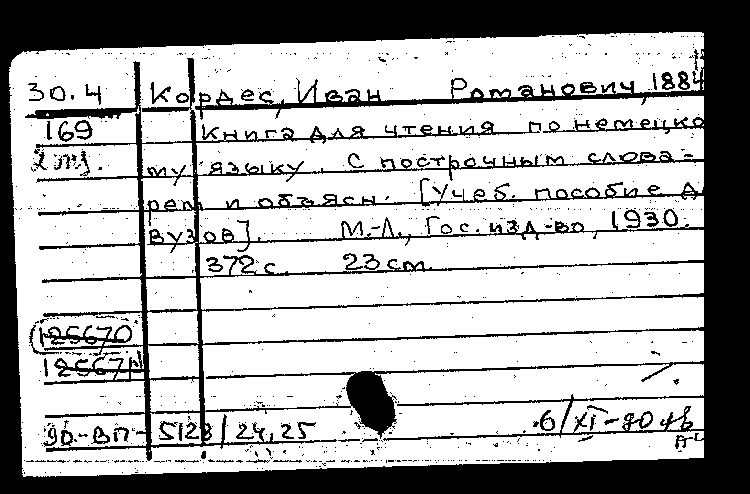 30.4 Кордес, Иван Романович, 1884
169 Книга для чтения по немецко
2 экз. му языку. С построчным слова=
рем и объясн. [Учеб. пособие д
вузов]. М.-Л., Гос. изд-во, 1930.
372 с. 23 см.
125670
125671
90.-ВП-5128/24,25
6/XI-80